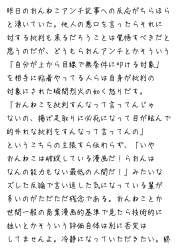 昨日のおんねこアンチ記事への反応がちらほら
と湧いていた。他人の悪口を言ったらそれに
対する批判も来るだろうことは覚悟すべきだと
思うのだが、どうもらおんアンチとかそういう
「自分が上から目線で無条件に叩ける対象」
を相手に粘着やってる人らは自身が批判の
対象にされた瞬間烈火の如く怒りだす。
「おんねこを批判すんなって言ってんじゃ
ないの、揚げ足取りに必死になって目が眩んで
的外れな批判をすんなって言ってんの」
というこちらの主張すら伝わらず、「いや
おんねこは破綻している漫画だ！らおんは
なんの能力もない最低の人間だ！」みたいな
ズレた反論で言い返した気になっている輩が
多いのがただただ残念である。おんねことか
世間一般の商業漫画的基準で見たら技術的に
拙いとかそういう評価自体は別に否定は
してませんよ。冷静になっていただきたい。終